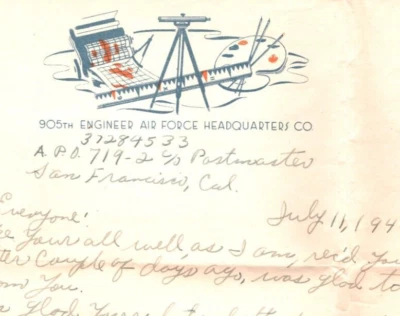 905TH ENGINEER AIR FORCE HEADQUARTERS CO.
37284533
A.P.O. 719-2 c/o Postmaster
San Francisco, Cal.
July 11, 194
Everyone!
your all well as I am, rec'd you
couple of days ago, was glad to
You.
glad